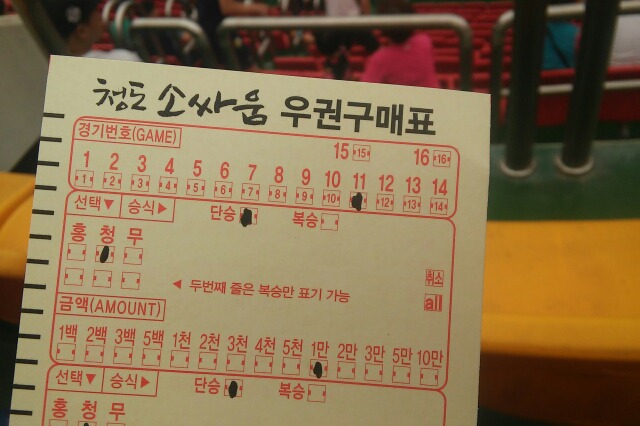 청도 소싸움 우권구매표
경기번호(GAME) 15 16
1 2 3 4 5 6 7 8 9 10 11 12 13 14
선택▼ 승식▶ 단승 복승
홍 청 무
◀ 두번째 줄은 복승만 표기 가능
취소
all
금액(AMOUNT)
1백 2백 3백 5백 1천 2천 3천 4천 5천 1만 2만 3만 5만 10만
선택▼ 승식▶ 단승 복승
홍 청 무